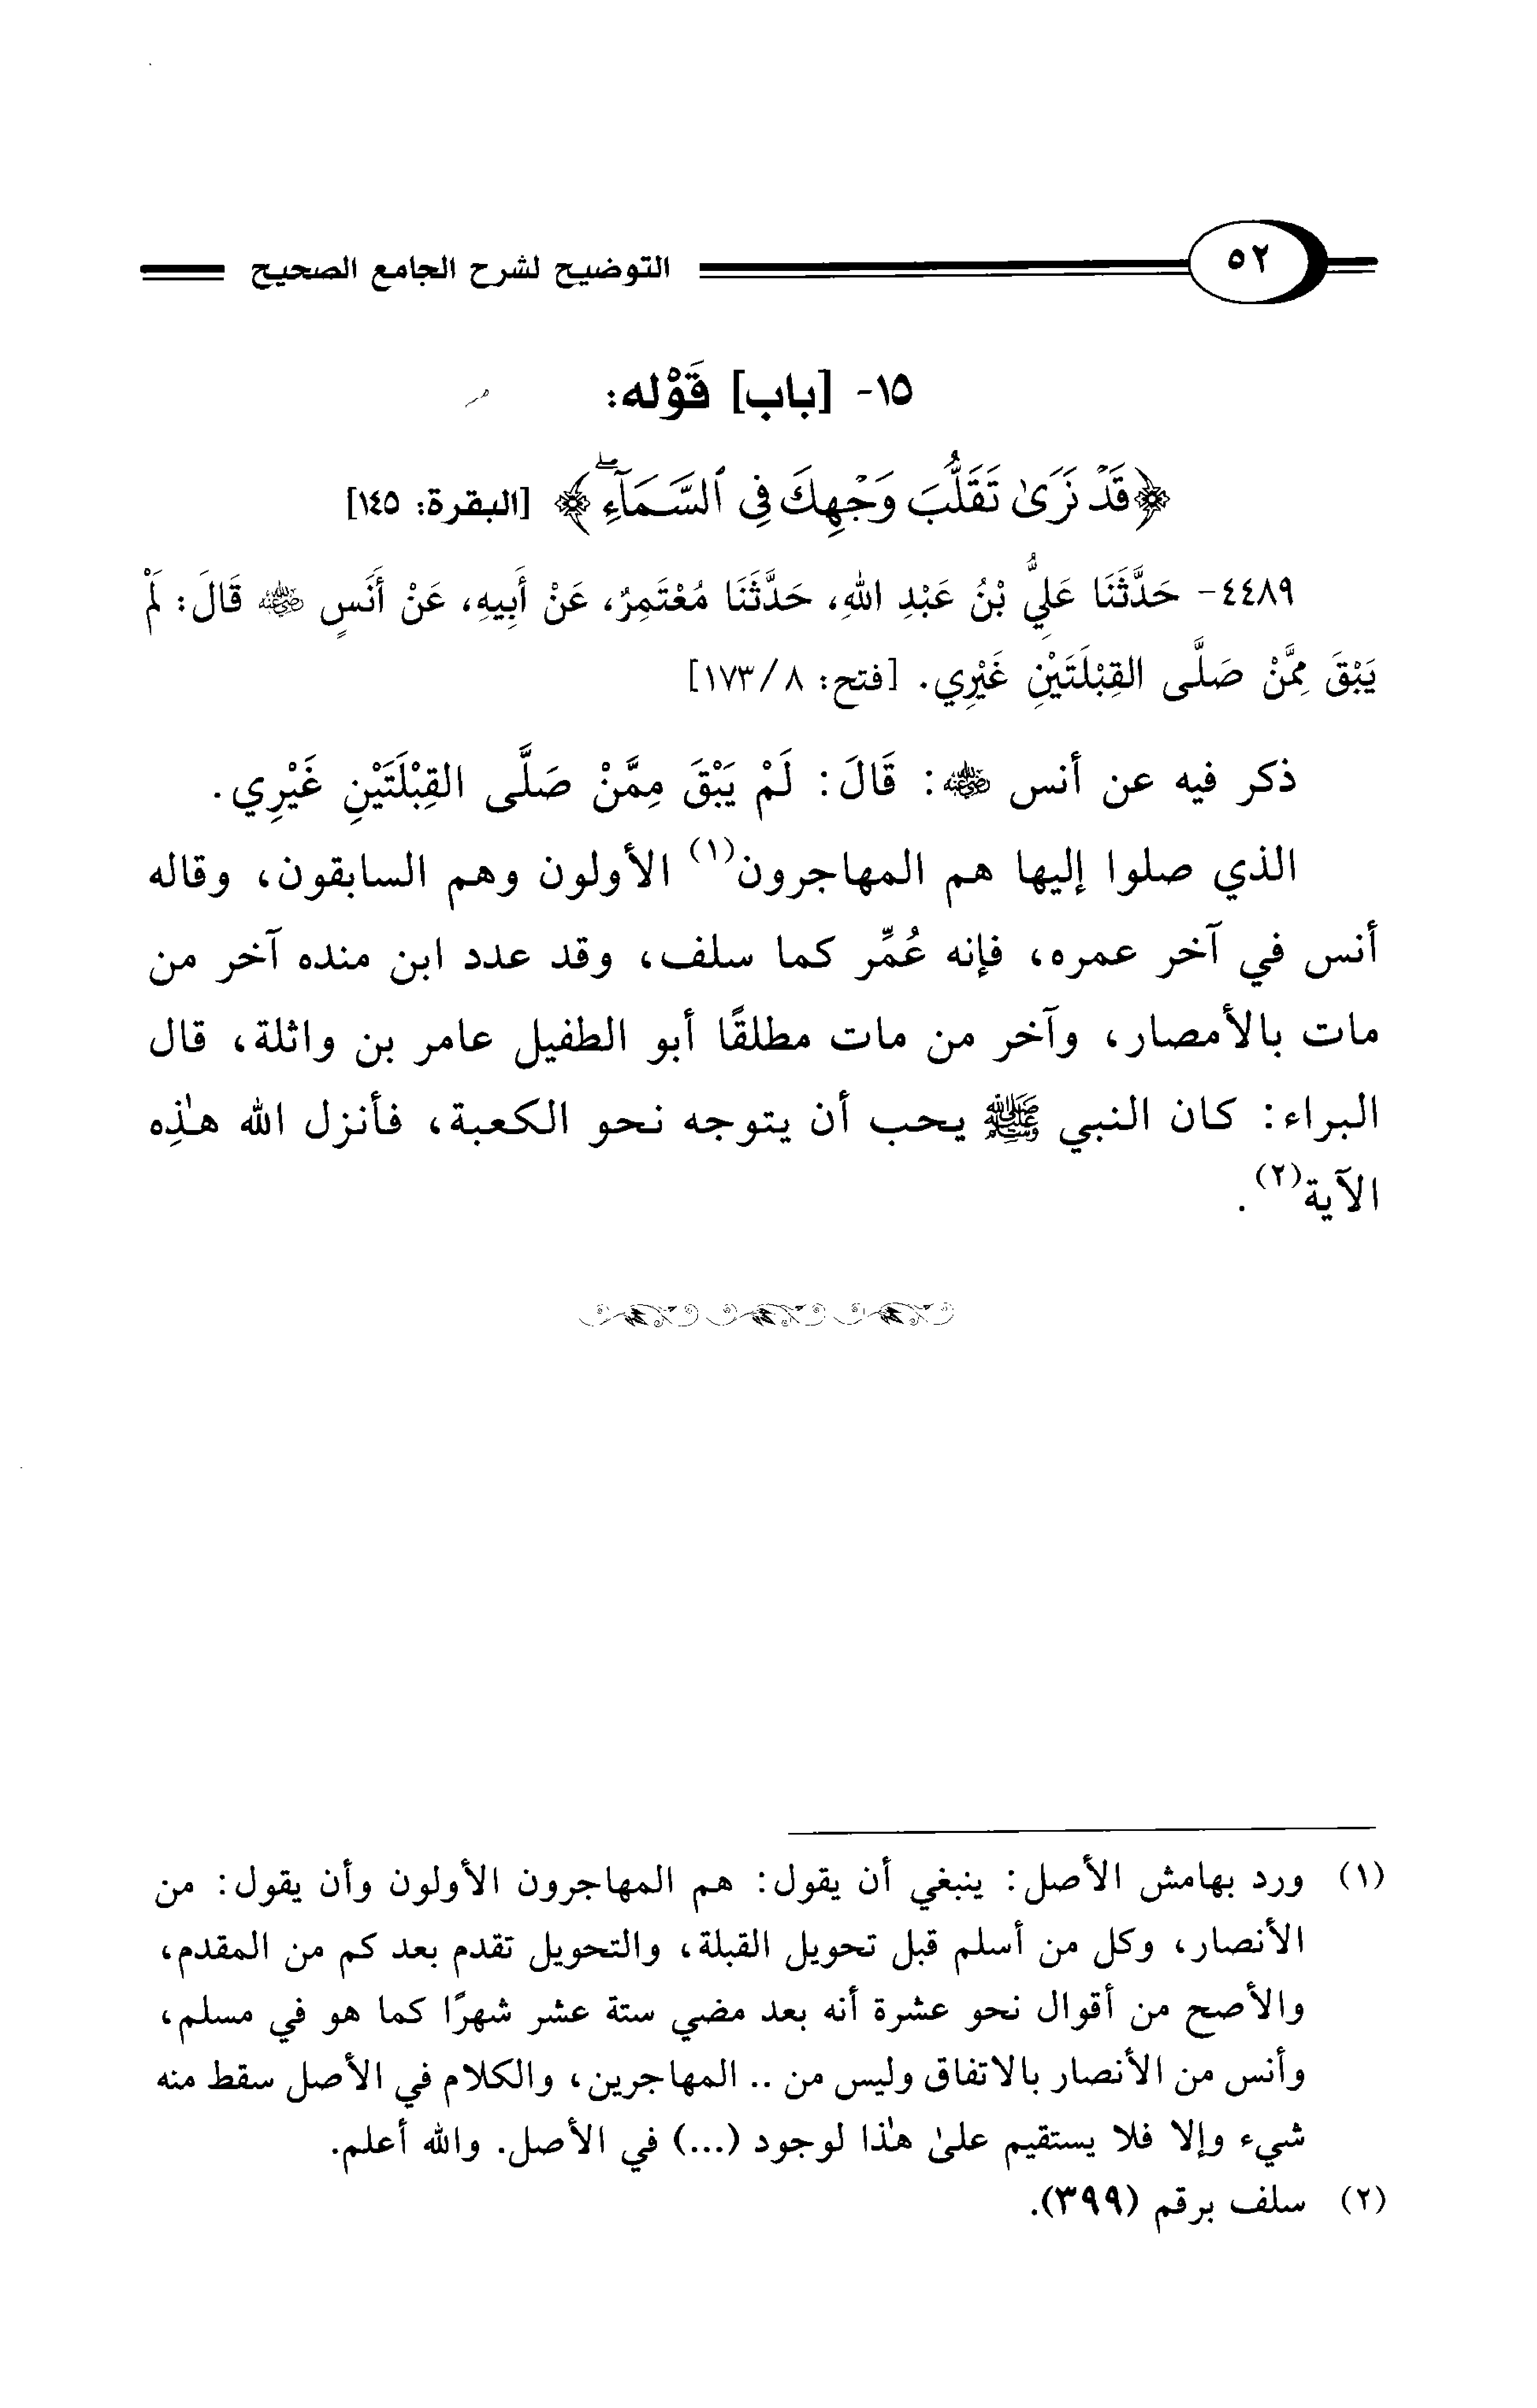 ٥٢ التوضيح لشرح الجامع الصحيح
١٥- [باب] قَوْله:
﴿قَدْ نَرَىٰ تَقَلُّبَ وَجْهِكَ فِي ٱلسَّمَآءِۖ﴾ [البقرة: ١٤٥]
٤٤٨٩- حَدَّثَنَا عَلِيُّ بْنُ عَبْدِ اللهِ، حَدَّثَنَا مُعْتَمِرٌ، عَنْ أَبِيهِ، عَنْ أَنَسٍ رضي الله عنه قَالَ: لَمْ
يَبْقَ مِمَّنْ صَلَّى القِبْلَتَيْنِ غَيْرِي. [فتح: ٨/١٧٣]
ذكر فيه عن أنس رضي الله عنه: قَالَ: لَمْ يَبْقَ مِمَّنْ صَلَّى القِبْلَتَيْنِ غَيْرِي.
الذي صلوا إليها هم المهاجرون(١) الأولون وهم السابقون، وقاله
أنس في آخر عمره، فإنه عُمِّر كما سلف، وقد عدد ابن منده آخر من
مات بالأمصار، وآخر من مات مطلقًا أبو الطفيل عامر بن واثلة، قال
البراء: كان النبي ﷺ يحب أن يتوجه نحو الكعبة، فأنزل الله هذِه
الآية(٢).
(١) ورد بهامش الأصل: ينبغي أن يقول: هم المهاجرون الأولون وأن يقول: من
الأنصار، وكل من أسلم قبل تحويل القبلة، والتحويل تقدم بعد كم من المقدم،
والأصح من أقوال نحو عشرة أنه بعد مضي ستة عشر شهرًا كما هو في مسلم،
وأنس من الأنصار بالاتفاق وليس من .. المهاجرين، والكلام في الأصل سقط منه
شيء وإلا فلا يستقيم علىٰ هذا لوجود (...) في الأصل. والله أعلم.
(٢) سلف برقم (٣٩٩).